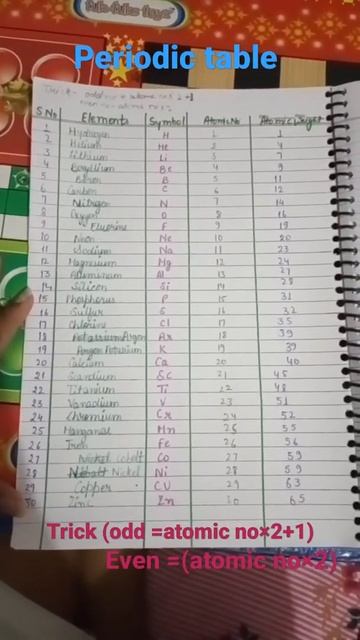 Periodic table
Trick - odd no = atomic no×2+1
S No Elements Symbol Atomic No Atomic
1 Hydrogen H 1
2 Helium He 2 4
3 Lithium Li 3 7
4 Beryllium Be 4 9
5 Boron B 5 11
6 Carbon C 6 12
7 Nitrogen N 7 14
8 Oxygen O 8 16
9 Fluorine F 9 19
10 Neon Ne 10 20
11 Sodium Na 11 23
12 Magnesium Mg 12 24
13 Aluminum Al 13 27
14 Silicon Si 14 28
15 Phosphorus P 15 31
16 Sulfur S 16 32
17 Chlorine Cl 17 35
18 Potassium Argon Ar 18 39
19 Argon Potasium K 19 39
20 Calcium Ca 20 40
21 Scandium Sc 21 45
22 Titanium Ti 22 48
23 Vanadium V 23 51
24 Chromium Cr 24 52
25 Manganese Mn 25 55
26 Iron Fe 26 56
27 Nickel Cobalt Co 27 59
28 Nickel Ni 28 59
29 Copper CU 29 63
30 Zinc Zn 30 65
Trick (odd =atomic no×2+1)
Even =(atomic no×2)